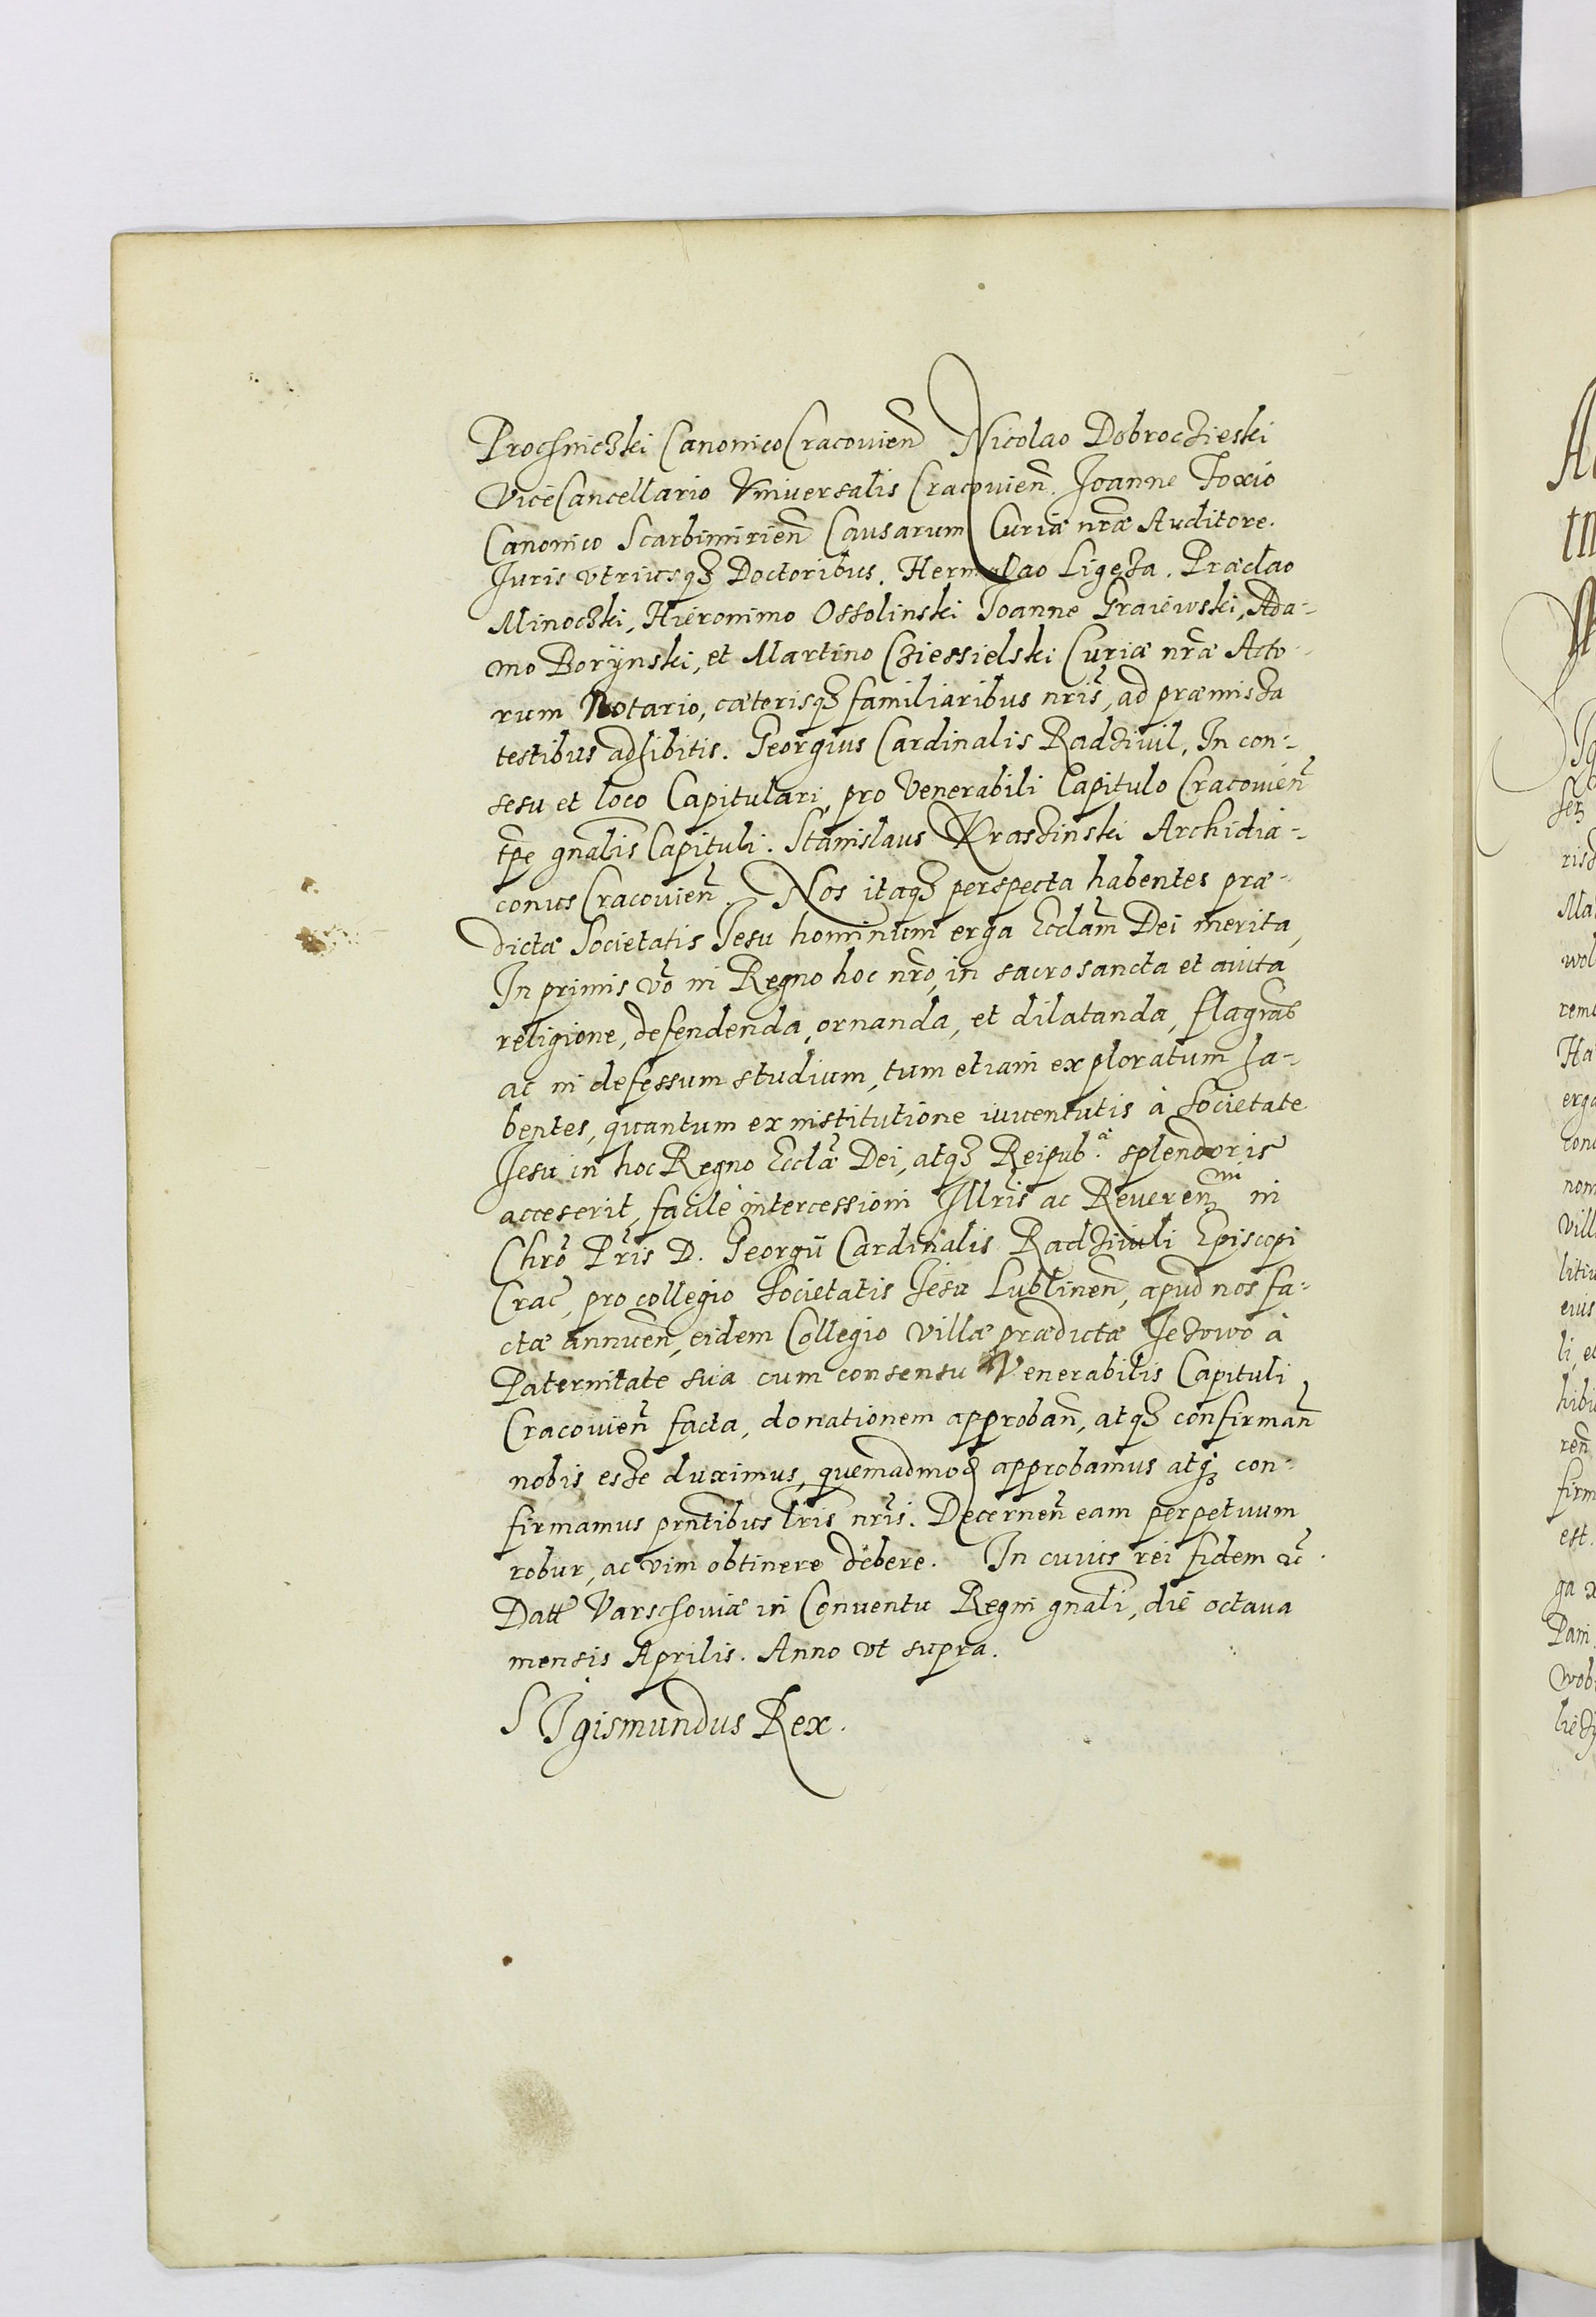 Prochniczki Canonico Cracovien̄ Nicolao Dobroczieski
ViceCancellario Vniversalis Cracovien̄. Joanne Foxio
Canonico Scarbimirien̄ Causarum Curiæ nr̄æ Auditore.
Juris vtriusq3 Doctoribus. Hermolao Ligęza. Præclao
Minoczki, Hieronimo Ossolinski Joanne Graiewski, Ada-
mo Borÿnski, et Martino Cziessielski Curiæ nr̄æ Acto-
rum Notario, cæterisq3 familiaribus nr̄is, ad præmissa
testibus adhibitis. Georgius Cardinalis Radziuil, In con-
sesu et loco Capitulari, pro Venerabili Capitulo Cracouien̄
tp̄e gn̄alis Capituli. Stanislaus Kraszinski Archidia-
conus Cracouien̄. Nos itaq3 perspecta habentes præ-
dictæ Societatis Jesu hominum erga Eccl̄am Dei merita,
In primis vo̅ in Regno hoc nr̄o, in sacrosancta et auita
religione, defendenda, ornanda, et dilatanda, flagran̄s
ac in defessum studium, tum etiam exploratum ha-
bentes, quantum ex institutione iuuentutis à Societate
Jesu in hoc Regno Eccl̄æ Dei, atq3 Reipub.æ splendoris
acceserit, facile intercessioni Jllr̄is ac Reueren̄mi in
Chr̄o Pr̄is D. Georgij Cardinalis Radziuili Episcopi
Crac̄, pro collegio Societatis Jesu Lublinen̄, apud nos fa-
ctæ annuen̄, eidem Collegio villæ prædictæ Jezowo à
Paternitate sua cum consensu Venerabilis Capituli
Cracouien̄ facta, donationem approban̄, atq3 confirman̄
nobis esse duximus, quemadmod approbamus atq3 con-
firmamus prn̄tibus lr̄is nr̄is. Decernen̄ eam perpetuum
robur, ac vim obtinere debere. In cuius rei fidem &c̄.
Datt Varschouiæ in Conventu Regni gn̄ali, die octaua
mensis Aprilis. Anno vt supra.
SIgismundus Rex.